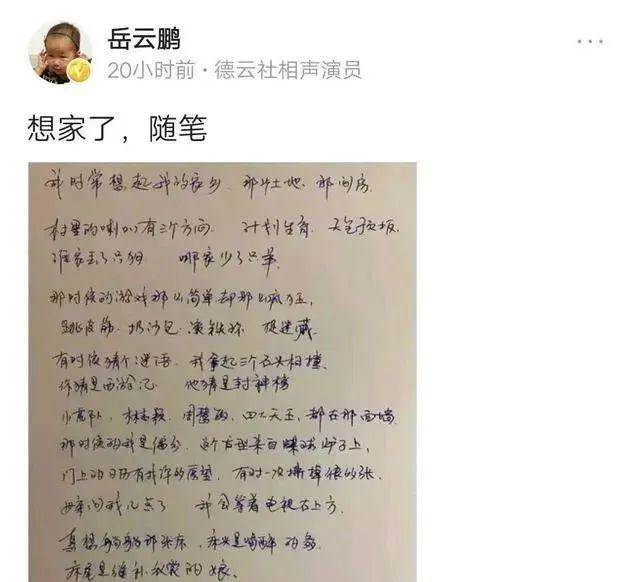 岳云鹏
20小时前·德云社相声演员
想家了，随笔
我时常想起我的家乡 那片土地、那间房
村里的喇叭有三个方向 计划生育 天气预报
谁家丢了只狗 哪家少了只羊
那时候的游戏那么简单却那么疯狂
跳皮筋 扔沙包 滚铁环 捉迷藏
有时候猜个谜语 我拿起三个石头相撞
你猜是西游记 他猜是封神榜
小虎队、林志颖 周慧敏、四大天王、都在那面墙
那时候的我是偏分、这个发型来自煤球炉子上
门上的日历有我许的愿望 有时一次撕掉很多张
母亲问我几点了 我回答看电视右上方
真想躺躺那张床、床头是喝醉的爹
床尾是缝补衣裳的娘